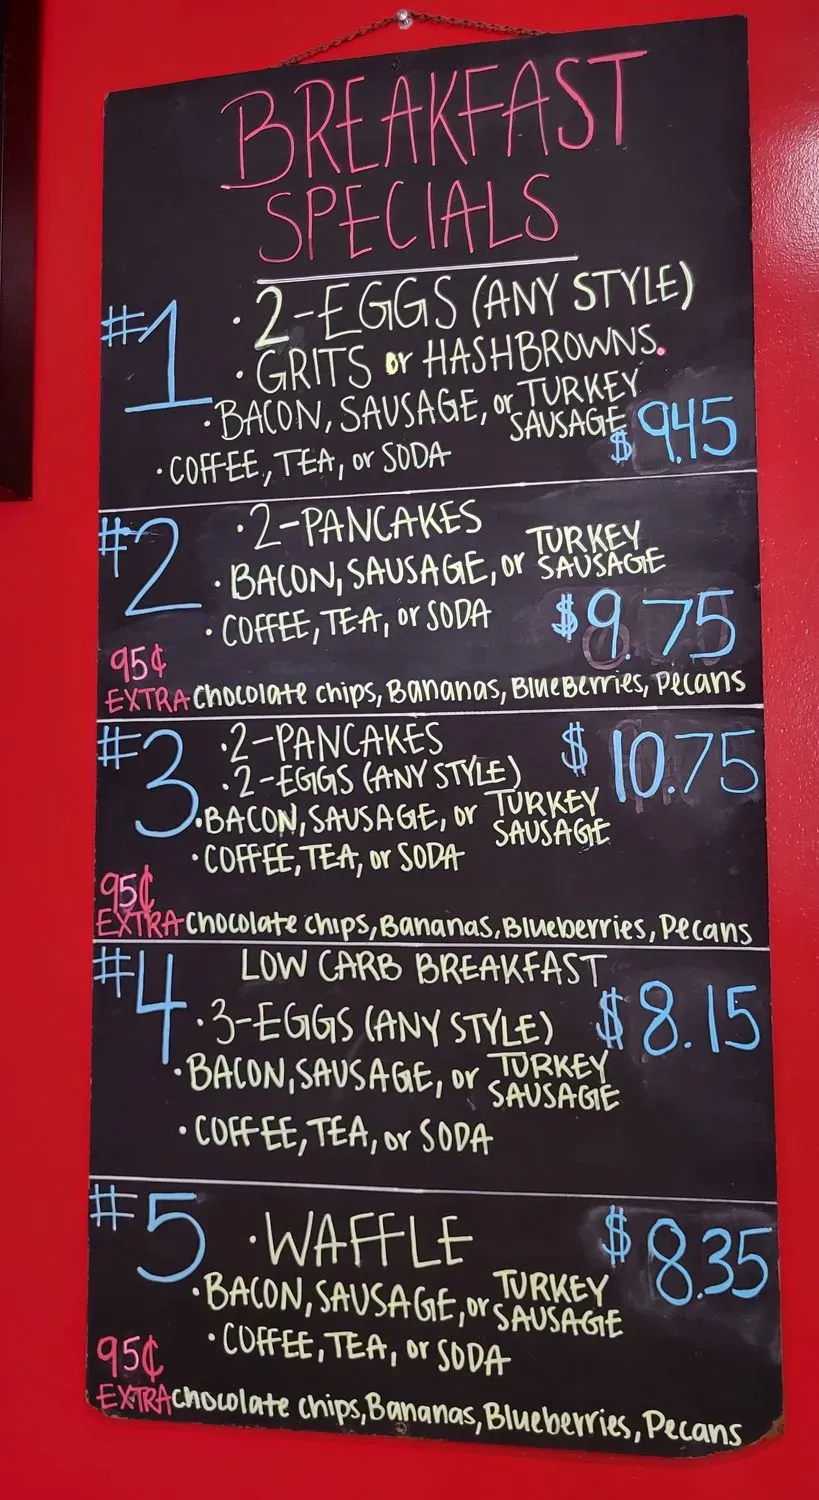 BREAKFAST
SPECIALS
#1
· 2-EGGS (ANY STYLE)
· GRITS or HASHBROWNS.
· BACON, SAUSAGE, or TURKEY SAUSAGE
$ 9.45
· COFFEE, TEA, or SODA
#2
· 2-PANCAKES
· BACON, SAUSAGE, or TURKEY SAUSAGE
· COFFEE, TEA, or SODA
$9.75
95¢
EXTRA Chocolate chips, Bananas, Blueberries, Pecans
#3
· 2-PANCAKES
$ 10.75
· 2-EGGS (ANY STYLE)
· BACON, SAUSAGE, or TURKEY SAUSAGE
· COFFEE, TEA, or SODA
95¢
EXTRA Chocolate chips, Bananas, Blueberries, Pecans
#4
LOW CARB BREAKFAST
· 3-EGGS (ANY STYLE)
$ 8.15
· BACON, SAUSAGE, or TURKEY SAUSAGE
· COFFEE, TEA, or SODA
#5
· WAFFLE
$ 8.35
· BACON, SAUSAGE, or TURKEY SAUSAGE
· COFFEE, TEA, or SODA
95¢
EXTRA Chocolate chips, Bananas, Blueberries, Pecans